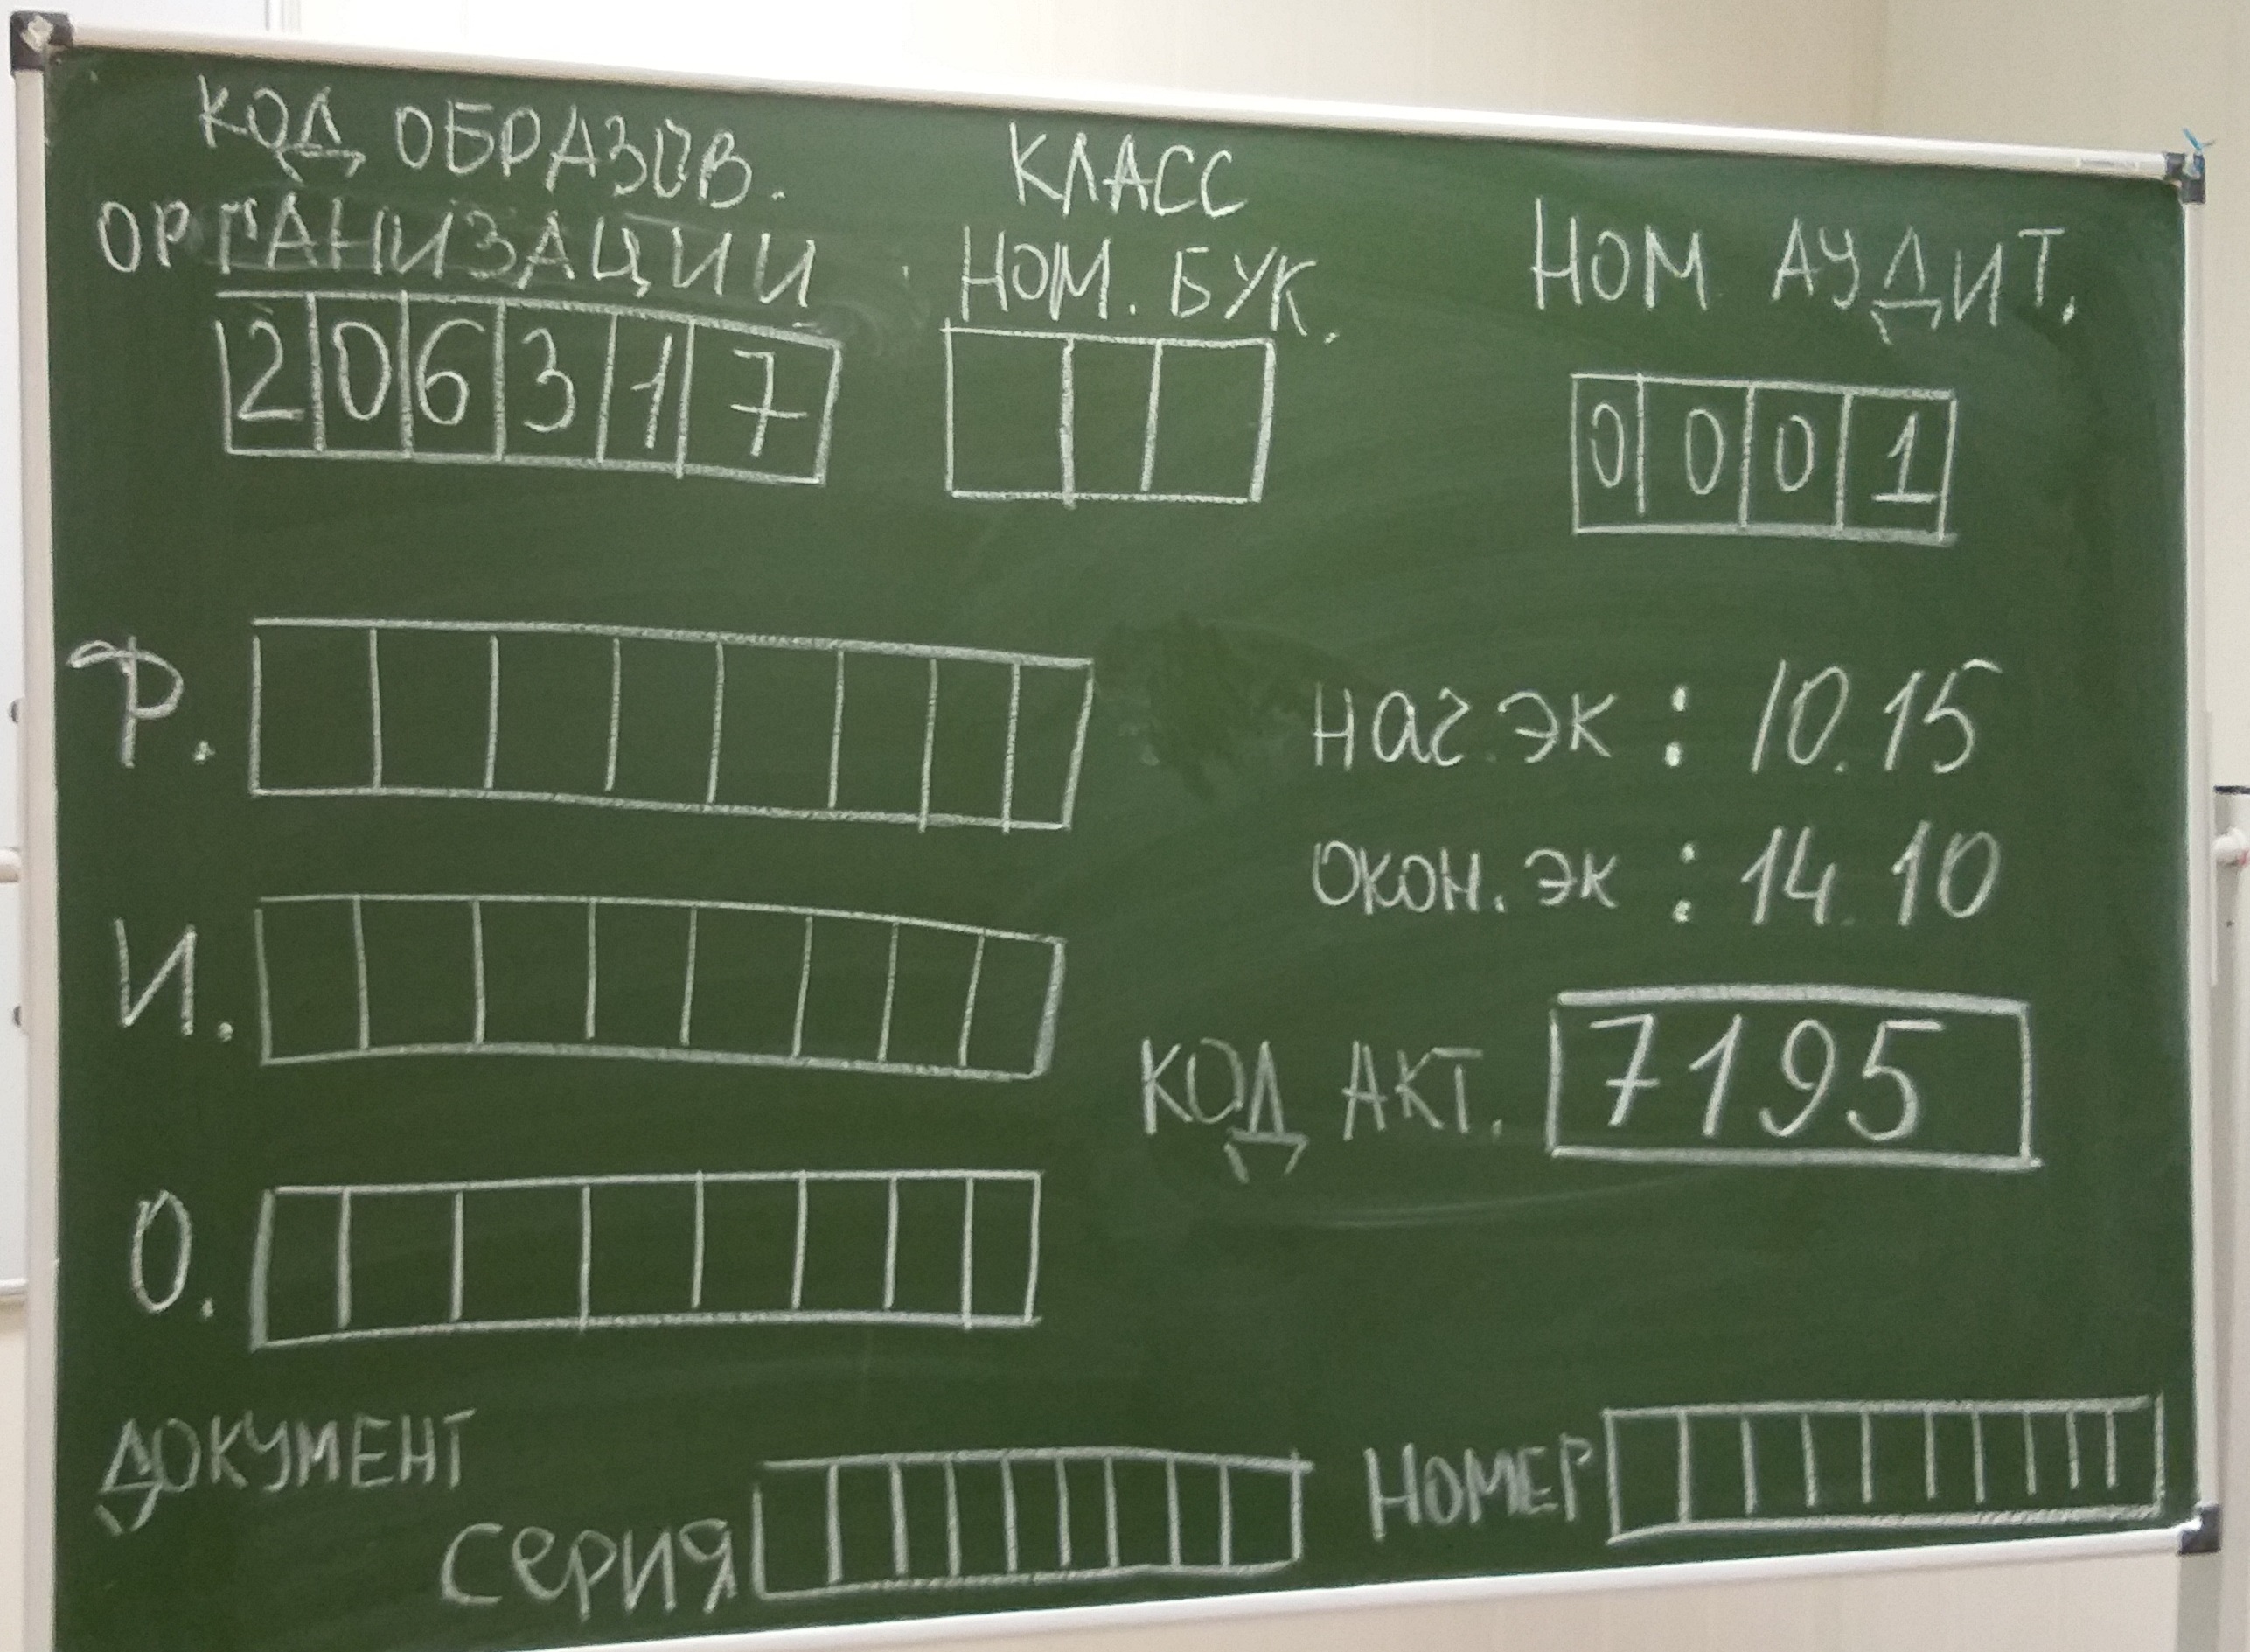 КОД ОБРАЗОВ.
ОРГАНИЗАЦИИ
206317
КЛАСС
НОМ. БУК.
НОМ АУДИТ.
0001
Ф.
И.
О.
нач.эк : 10.15
окон.эк : 14.10
КОД АКТ. 7195
ДОКУМЕНТ
серия
НОМЕР